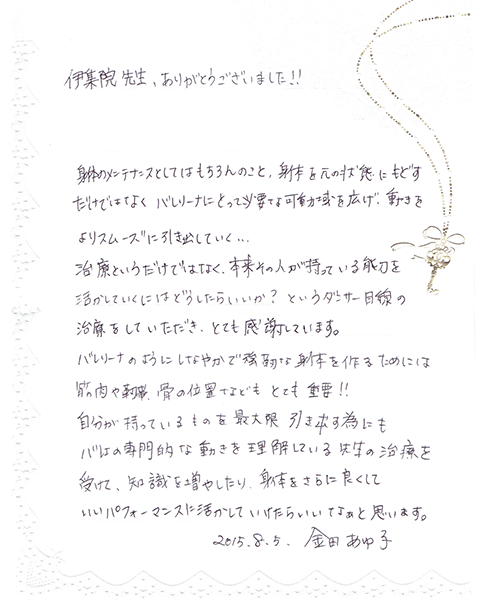 伊集院先生、ありがとうございました!!
身体のメンテナンスとしてはもちろんのこと、身体を元の状態にもどす
だけではなく バレリーナにとって必要な可動域を広げ、動きを
よりスムーズに引き出していく...
治療というだけではなく、本来その人が持っている能力を
活かしていくにはどうしたらいいか？というダンサー目線の
治療をしていただき、とても感謝しています。
バレリーナのようにしなやかで強靭な身体を作るためには
筋肉や 骨の位置なども とても重要!!
自分が持っているものを最大限 引き出す為にも
バレエの専門的な動きを理解している先生の治療を
受けて、知識を増やしたり、身体をさらに良くして
いいパフォーマンスに活かしていけたらいいなぁと思います。
2015.8.5. 金田あゆ子